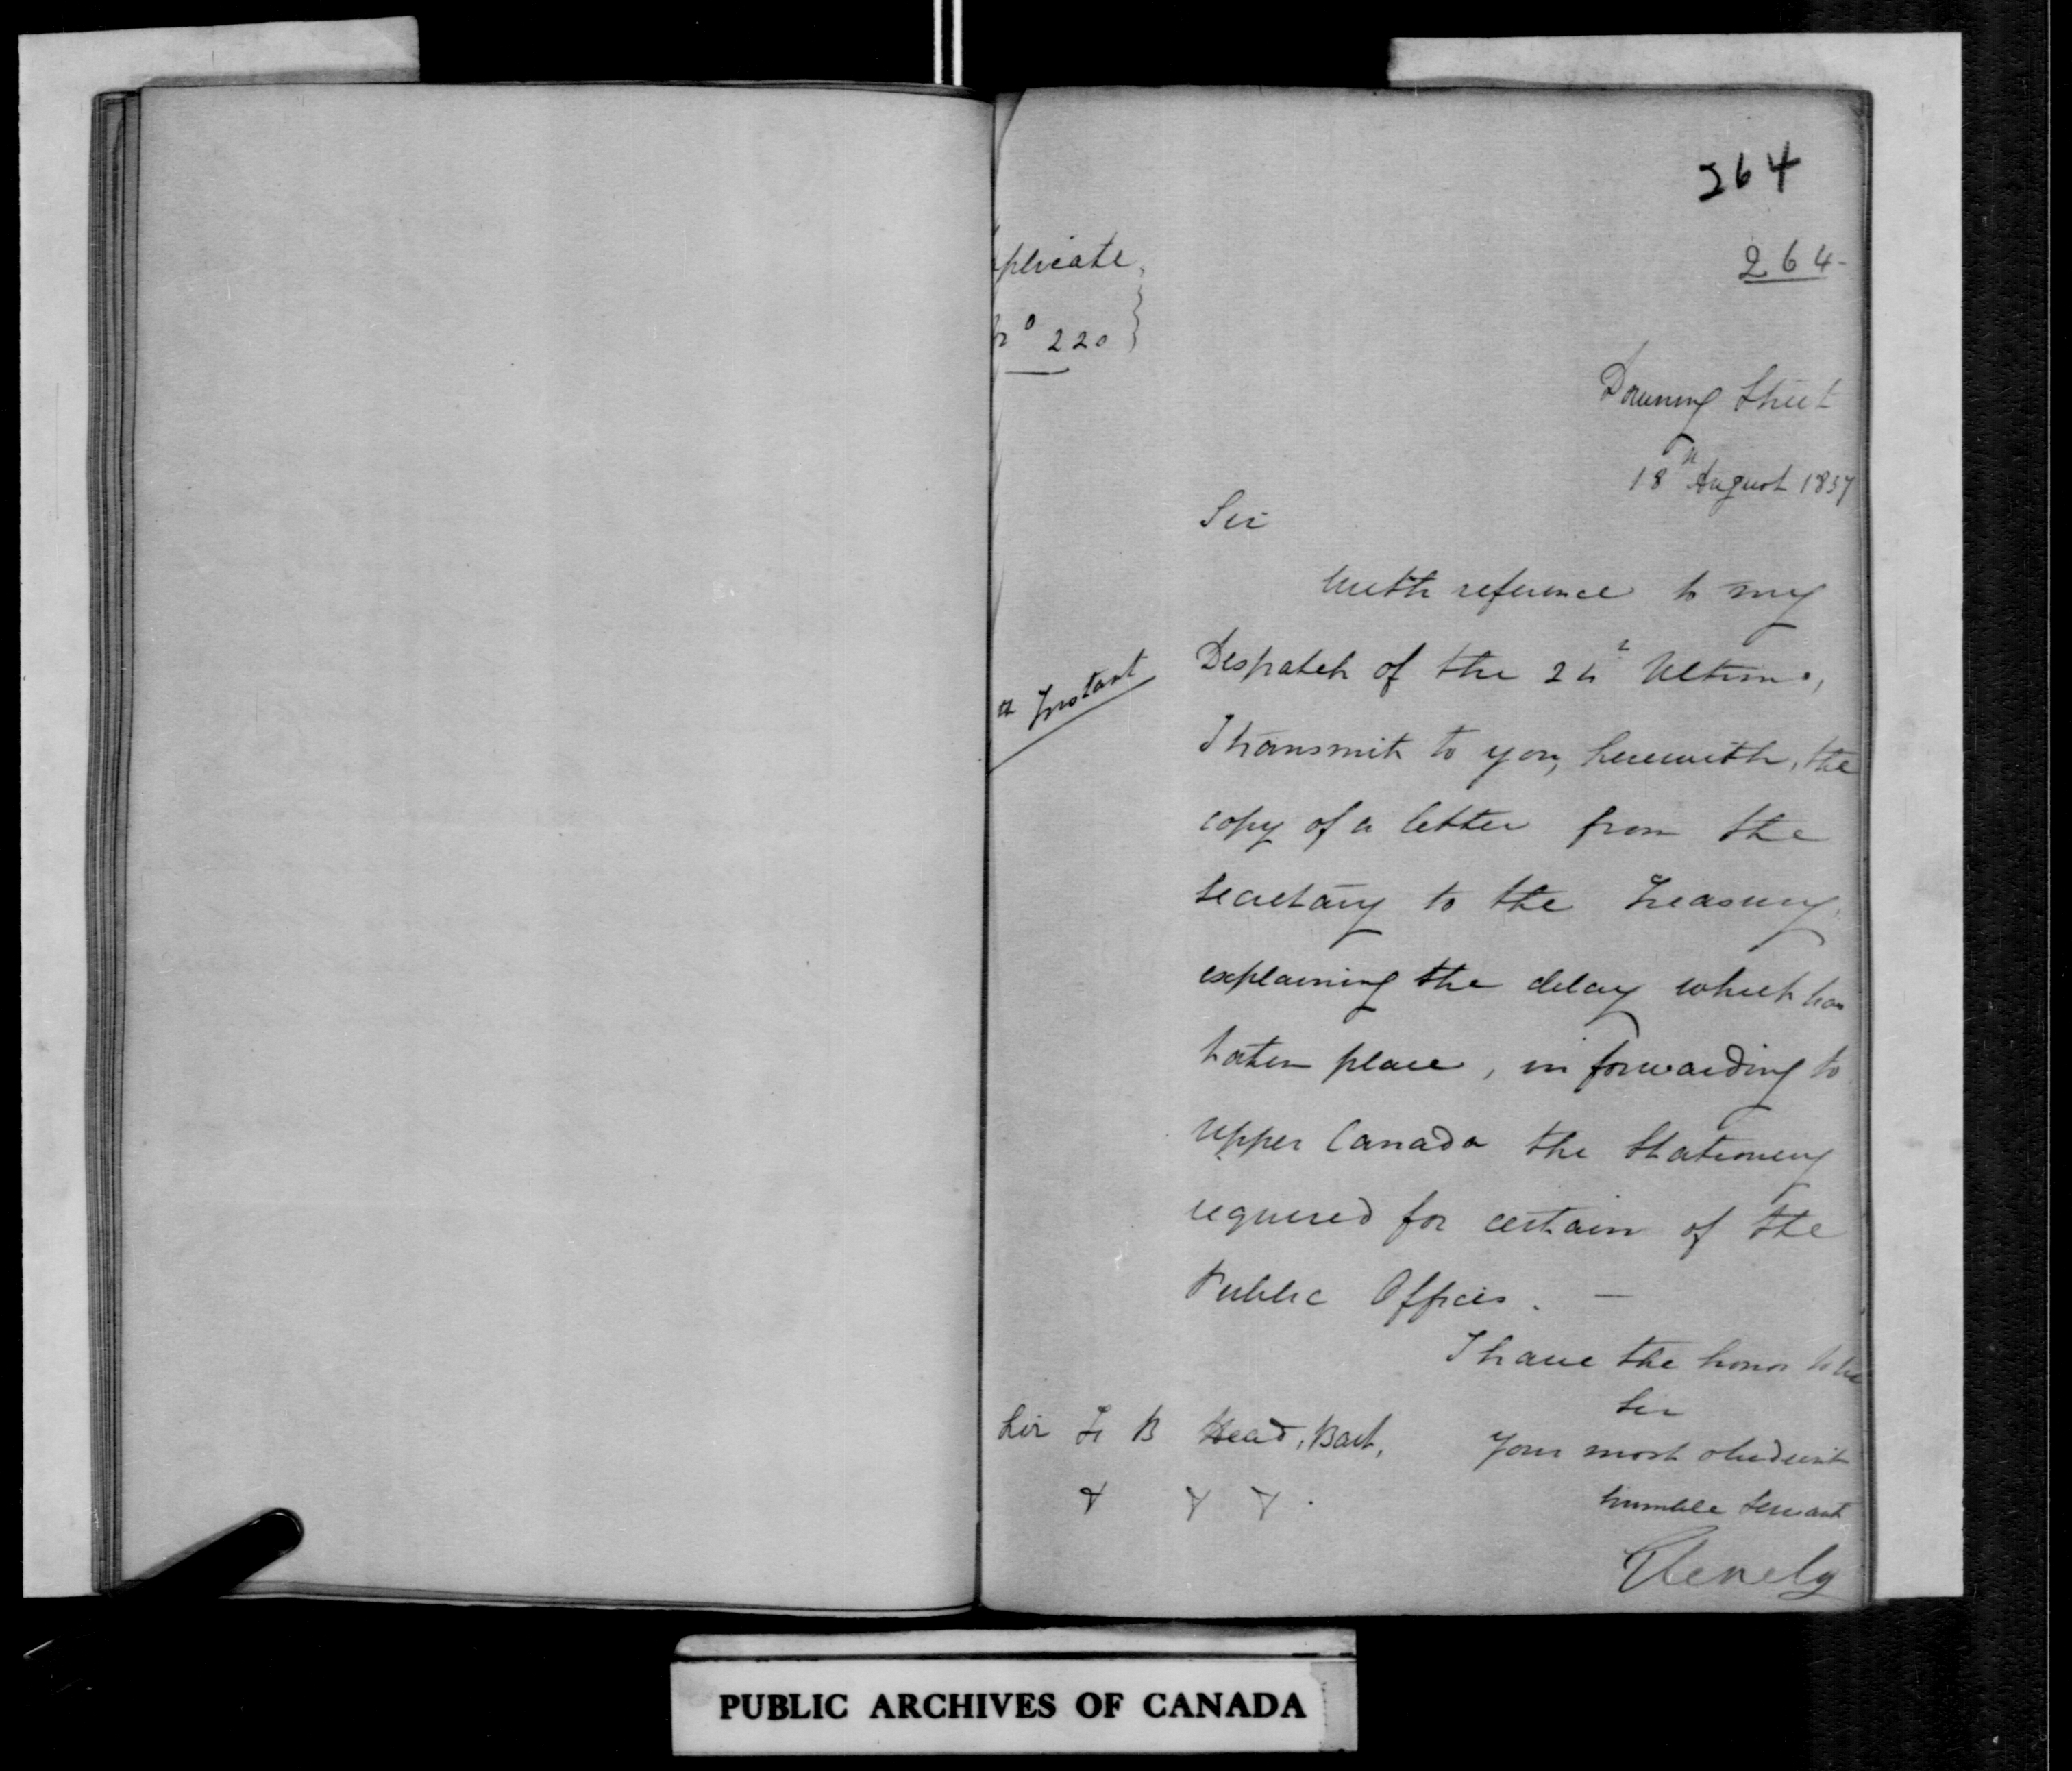 264
264-
plicate
No 220
Downing Street
18th August 1837
Sir
With reference to my
Despatch of the Ultimo,
Instant
I transmit to you, herewith, the
copy of a letter from the
Secretary to the Treasury,
explaining the delay which has
taken place, in forwarding to
Upper Canada the Stationery
required for certain of the
Public Offices. —
I have the honor to be
Sir
Sir F B Head, Bart,
Your most obedient
& & &.
humble Servant
Glenelg
PUBLIC ARCHIVES OF CANADA